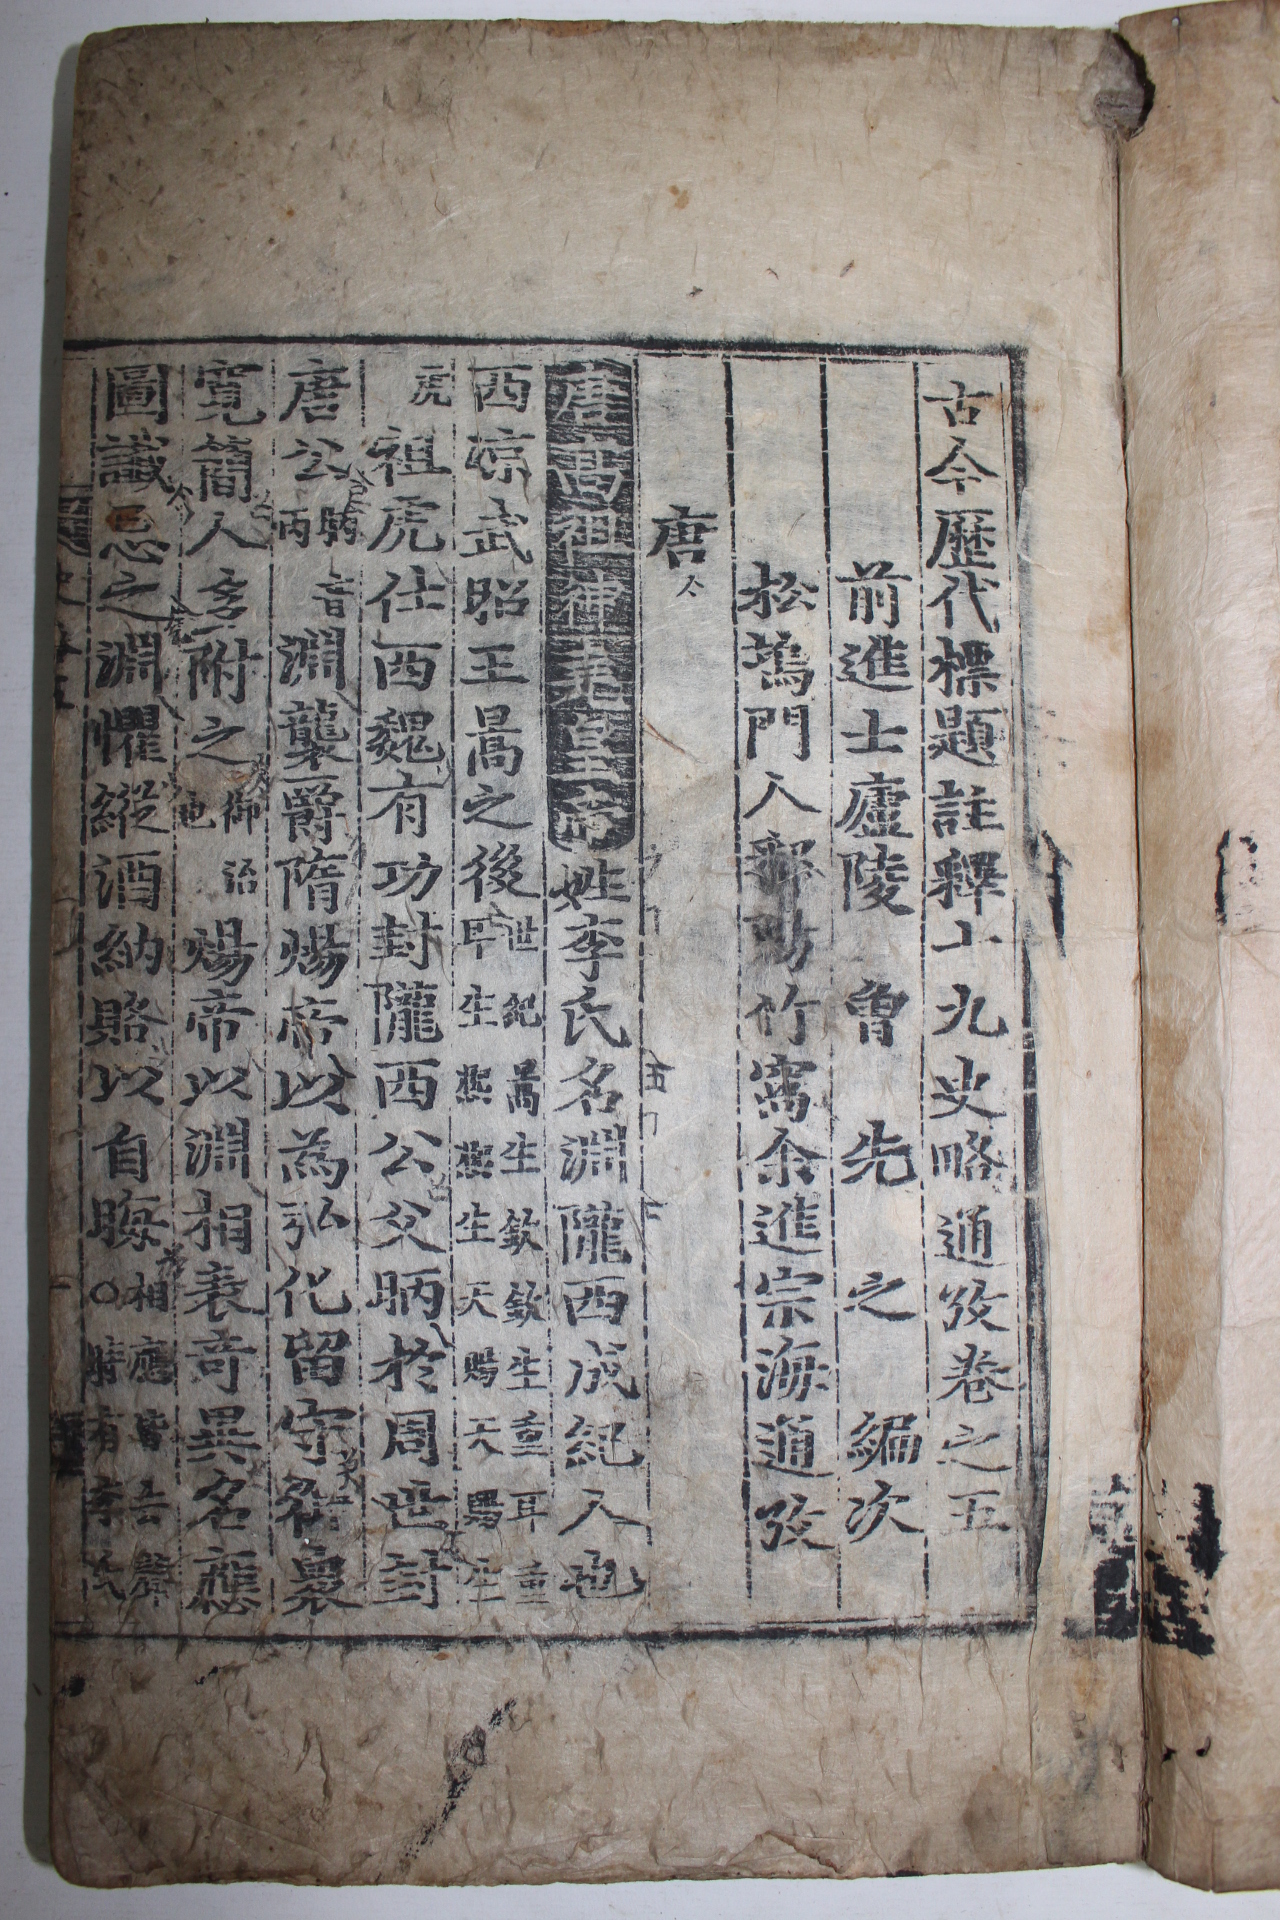 古今歷代標題註釋十九史略通攷卷之五
前進士廬陵 曾 先 之 編次
松塢門人 竹窩余進宗海通攷
唐
唐高祖神堯皇帝姓李氏名淵隴西成紀人也
西凉武昭王暠之後世紀暠生歆歆生重耳重耳生熙熙生天賜天賜生虎
祖虎仕西魏有功封隴西公父昞於周世封
唐公昞音丙淵襲爵隋煬帝以為弘化留守御衆
寬簡人多附之御治也煬帝以淵相表奇異名應
圖讖忌之淵懼縱酒納賂以自晦相應皆去聲○時有李氏